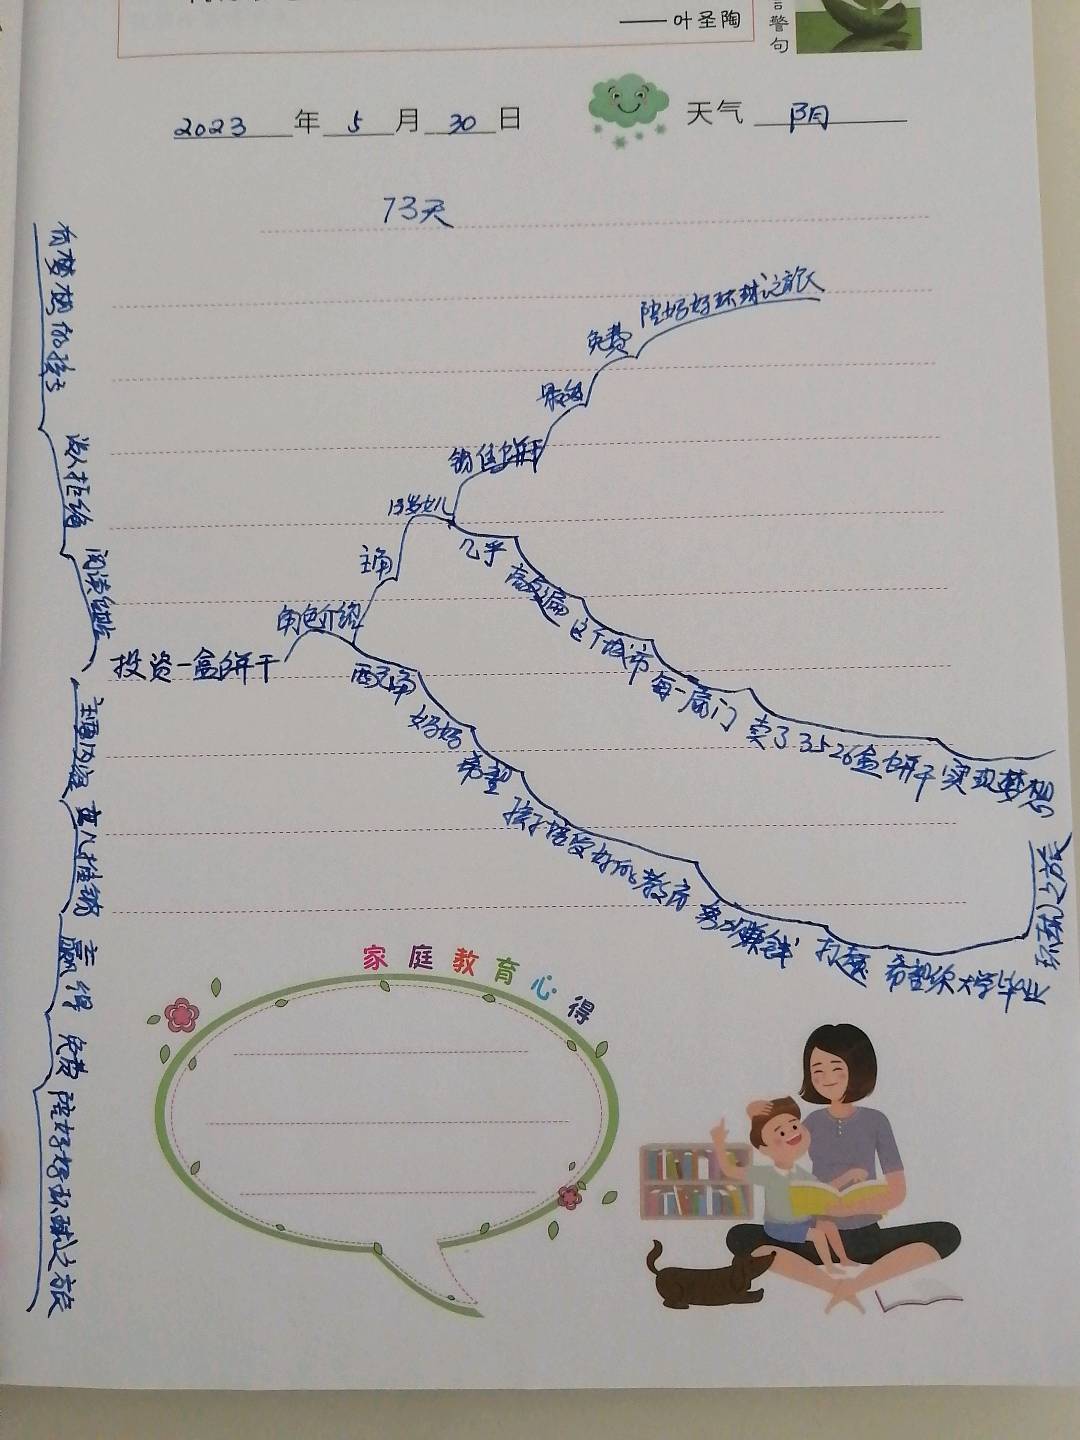 —— 叶圣陶
言警句
2023 年 5 月 30 日
天气 阴
73天
有梦想的孩子
没人拒绝
阅读
投资一盒饼干
角色介绍
主角
13岁女儿
销售饼干
最终
免费
陪妈妈环球之旅
几乎
高
遍
这个城市
每一扇门
卖了3526盒饼干
实现梦想
配角
妈妈
希望
孩子接受好的教育
努力赚钱
打趣
希望你大学毕业
环球之旅
主要内容
女儿推销
赢得
免费
陪妈妈环球之旅
家庭教育心得